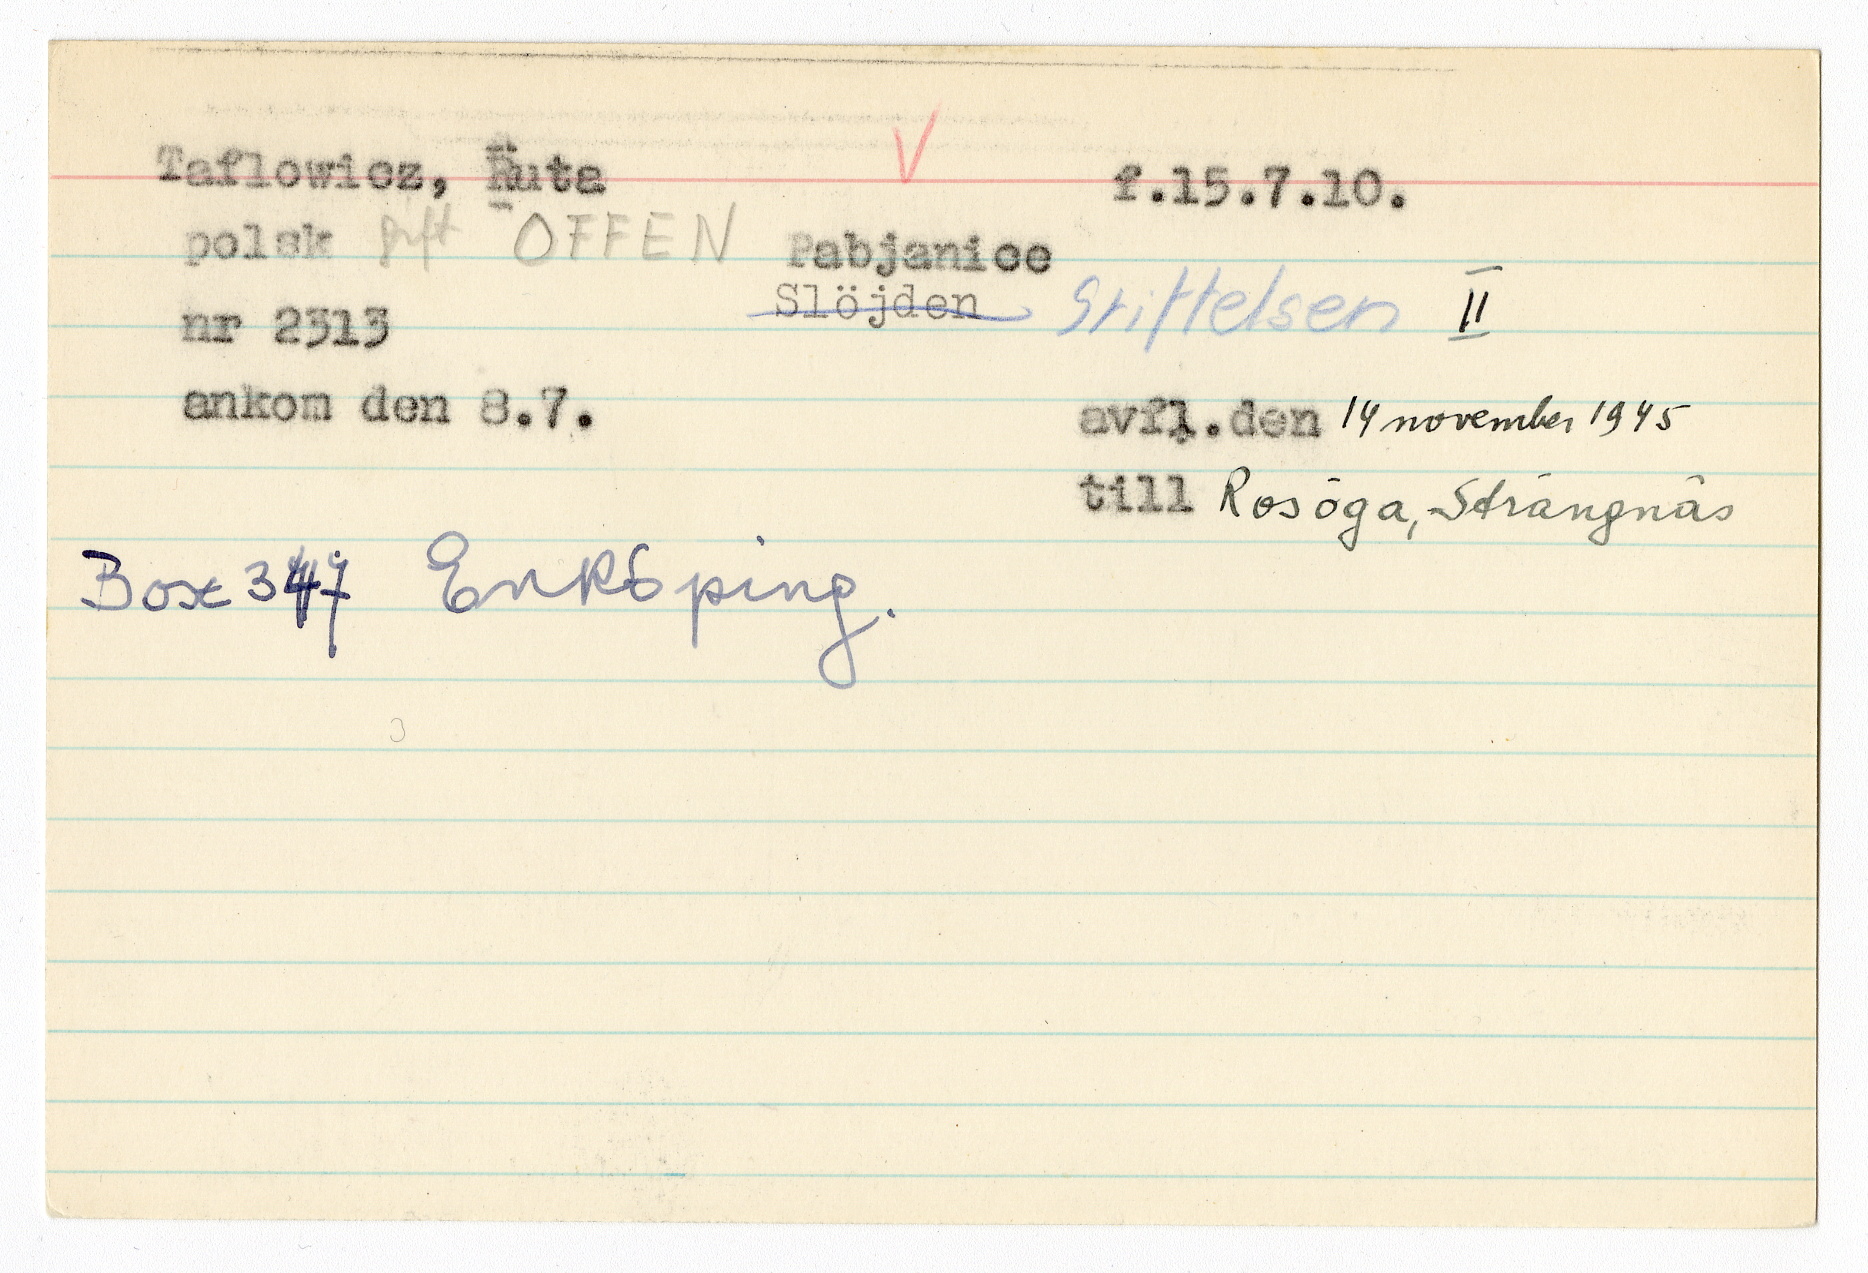 V
Taflowicz, Ruta f.15.7.10.
polsk gift OFFEN Pabjanice
Slöjden Stiftelsen II
nr 2313
ankom den 8.7. avfl.den 14 november 1945
till Rosöga, Strängnäs
Box 347 Enköping.
3